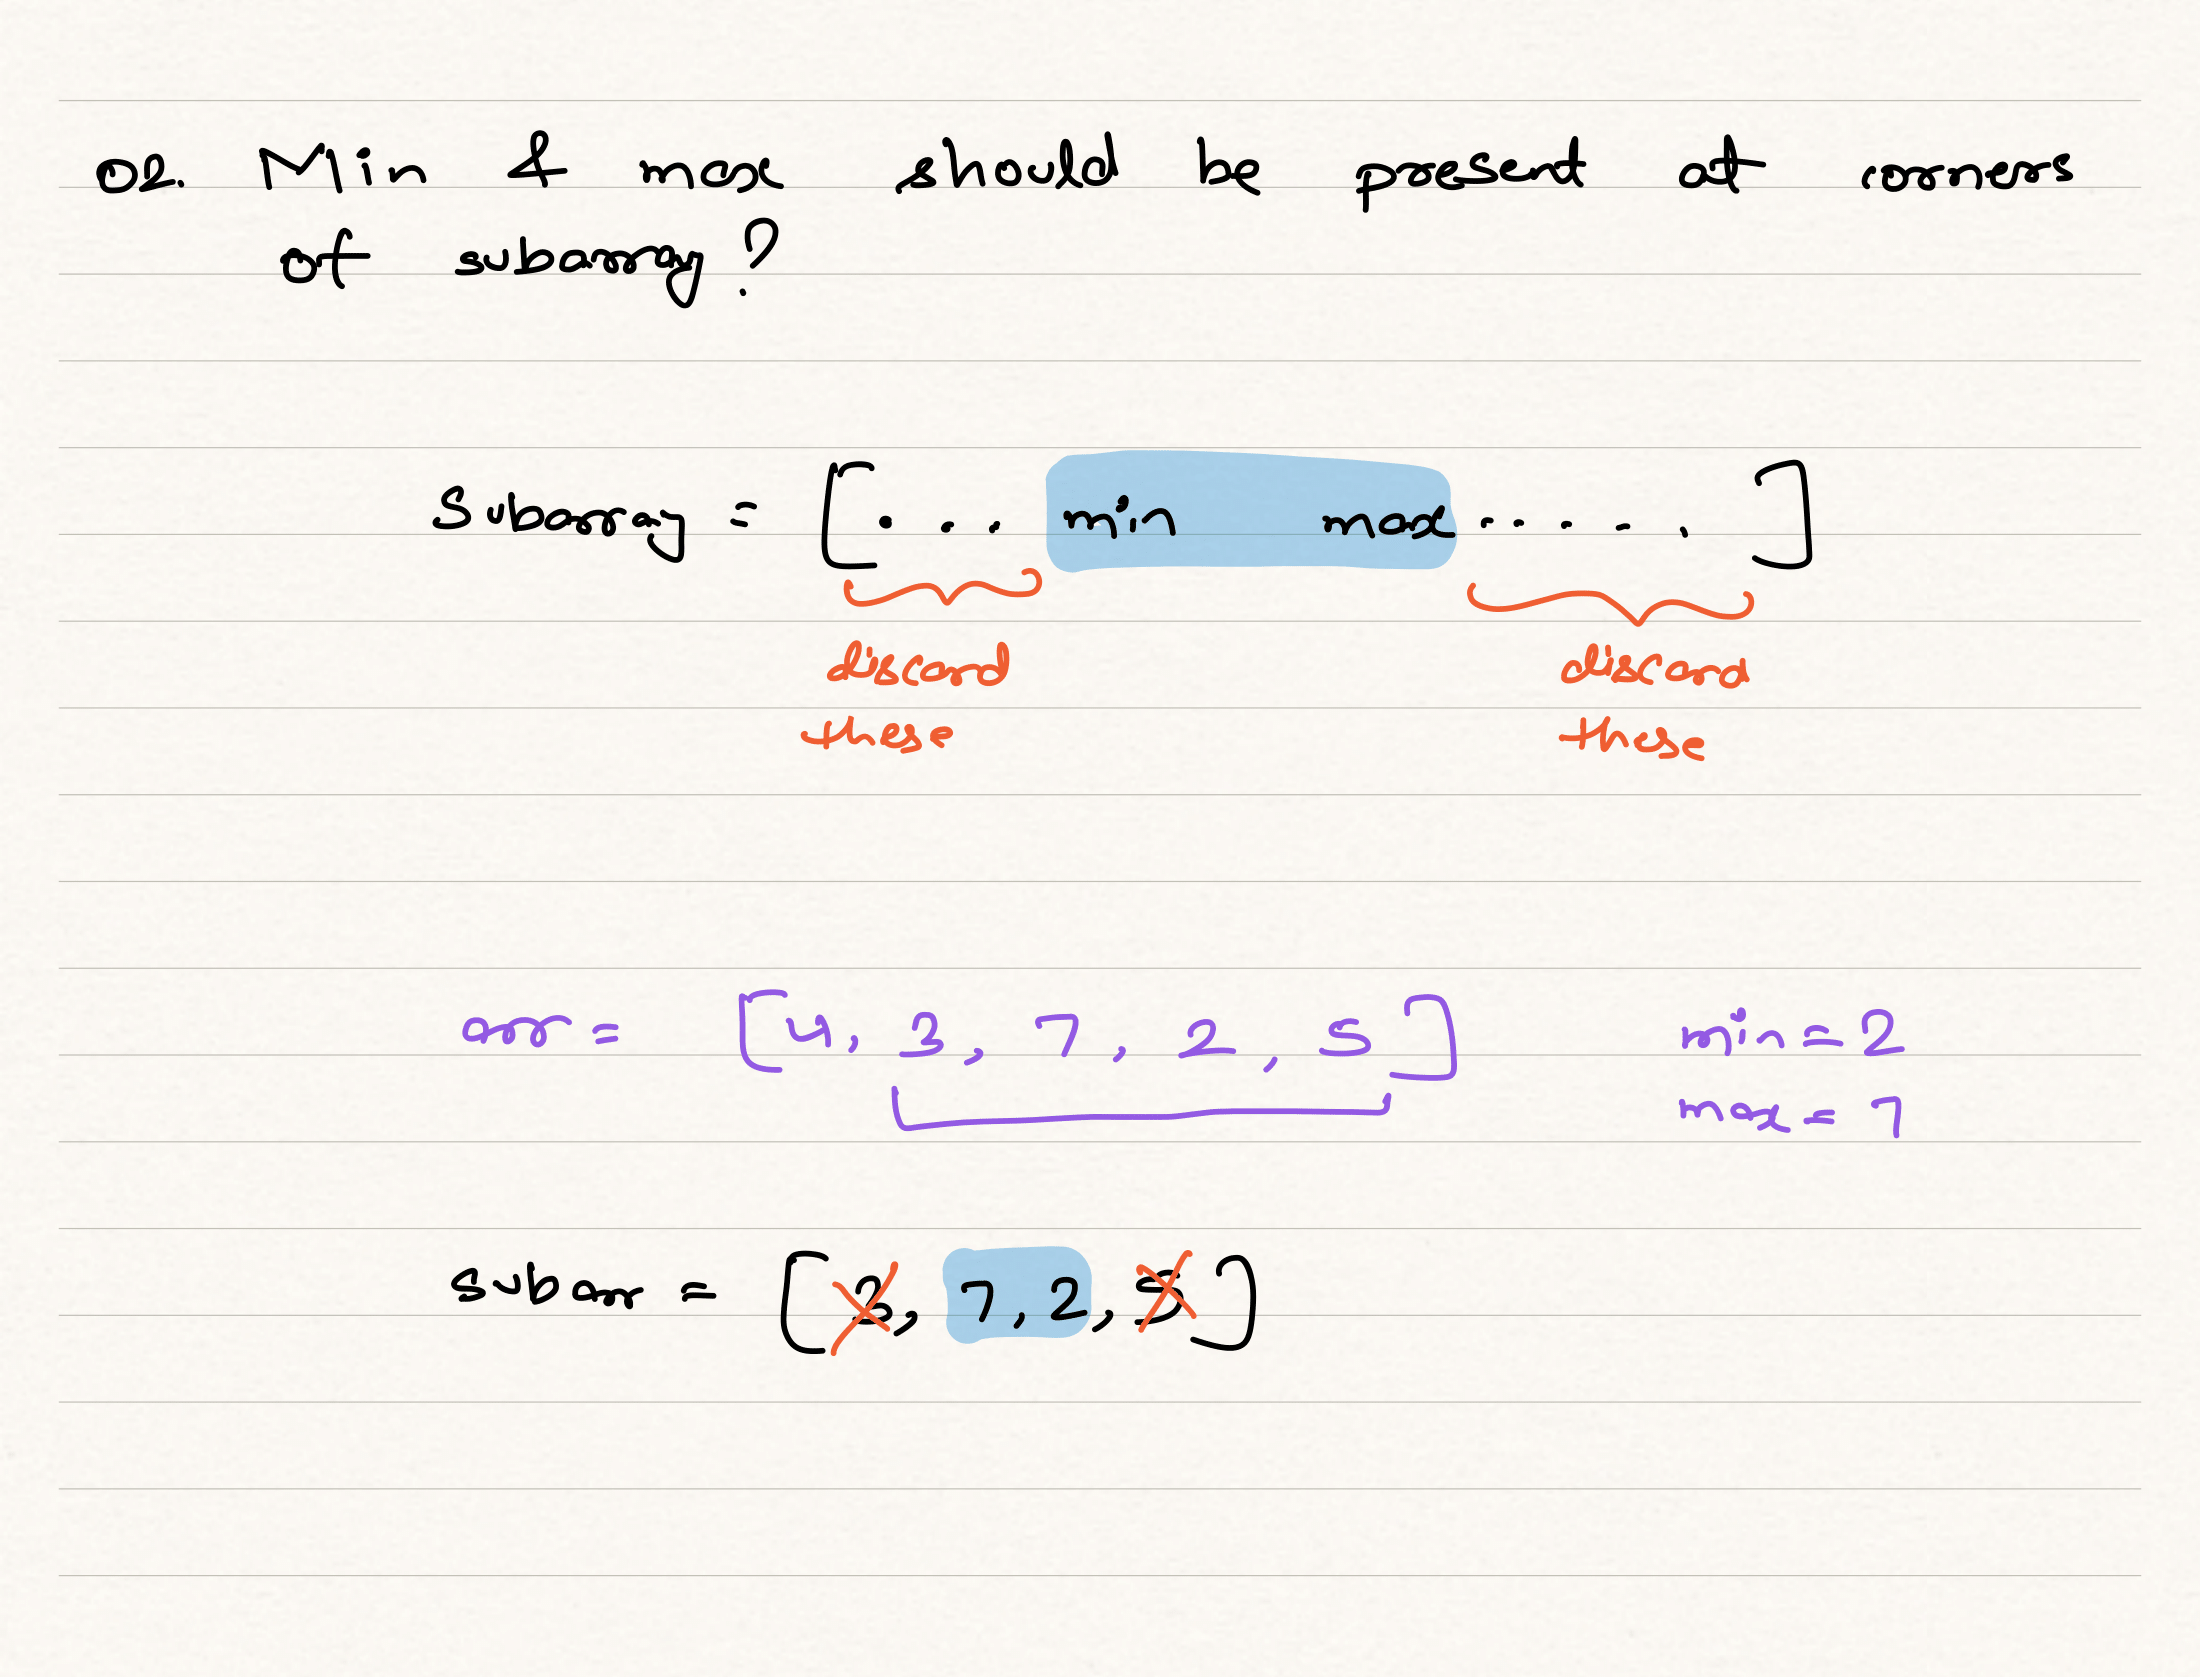 02. Min & max should be present at corners
of subarray?
Subarray = [ . . . min max . . . . . . ]
discard these
discard these
arr = [4, 3, 7, 2, 5] min = 2
max = 7
subarr = [3, 7, 2, 5]